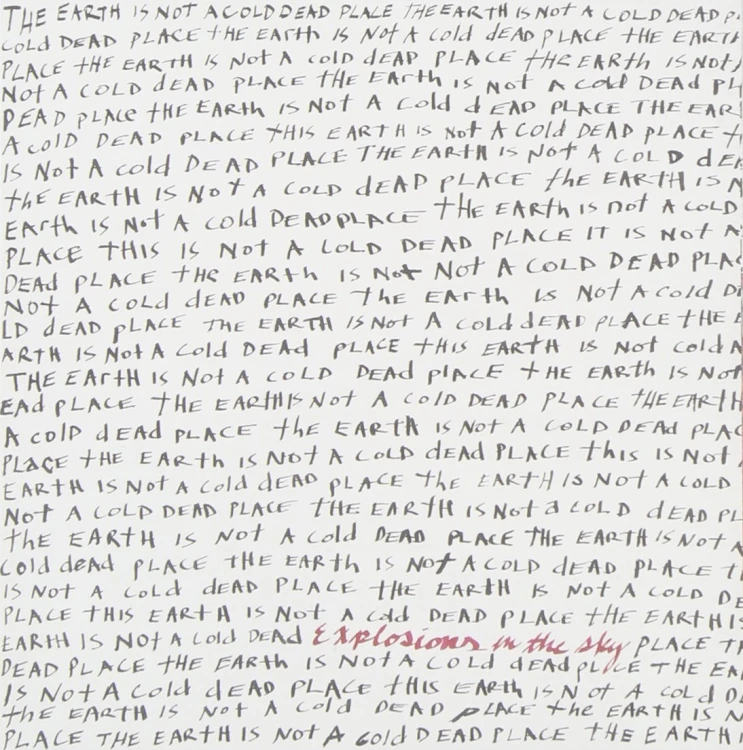 THE EARTH IS NOT A COLD DEAD PLACE THE EARTH IS NOT A COLD DEAD P
COLD DEAD PLACE tHE EARth IS Not A Cold dEAD PLACE tHE EARTH
PLACE tHE EARTH IS Not A cold dEAD PLACE tHE EARTH IS NOT
NOt A COLD dEAD PLACE tHE EARth is Not A cold DEAD PL
DEAD PLACE tHE EARth IS Not A Cold dEAD PLACE THE EAR
A COlD DEAD PLACE tHIS EARTH IS Not A Cold DEAD PLACE t
IS Not A cold DEAD PLACE THE EARTH IS Not A COLD dEA
tHE EARTH IS Not A COLD dEAD PLACE thE EARTH IS N
EARth IS Not A cold DEAD PLACE tHE EARth is not A COLD
PLACE THIS IS NOT A COLD DEAD PLACE IT IS NOT A
DEAd PLACE tHE EARth IS Not Not A COLD DEAD PLAC
NOT A COLD dEAD PLACE thE EARth is Not A cold D
LD dEAD pLACE THE EARTH IS Not A cold dEAD PLACE tHE E
ARTH IS Not A Cold DEAd PLACE tHIS EARTH IS Not cold A
THE EARtH IS Not A COLD DEAD plACE tHE EARth IS Not
EAd PLACE tHE EARtH IS Not A COlD DEAD PLACE tHE EARTH
A colD dEAd PLACE thE EARTH IS Not A COLD DEAd PLAC
PLACE tHE EARth IS Not A Cold dead PLACE this IS Not
EARTH IS Not A Cold dEAD PLACE thE EARTH IS Not A COLD
Not A COLD DEAD PLACE tHE EARTH IS Not a COLD dEAD PL
thE EARTH IS Not A cold DEAD PLACE THE EARTH IS Not A
Cold dead PLACE tHE EARth IS NOT A COLD dEAD PLACE T
IS NOT A Cold dEAD PLACE tHE EARTH IS Not A COLD DE
PLACE THIS EARTH IS Not A cold DEAD PLACE tHE EARTH IS
EARTH IS Not A Cold DEAD Explosions in the sky PLACE TH
DEAD PLACE tHE EARth IS Not A COLD dEAD pLACE tHE EA
IS Not A Cold dEAD PLACE tHIS EARTH IS Not A COLd D
thE EARTH IS Not A Cold DEAD PLACE thE EARTH IS N
PLACE THE EARTH IS Not A Cold DEAD PLACE tHE EARTH